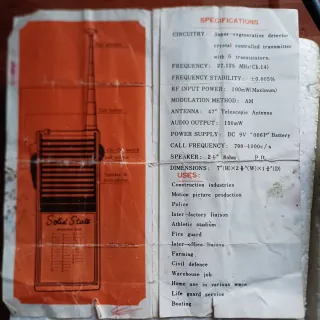 Solid State
SPECIFICATIONS
CIRCUITRY: Super-regenerative detector
crystal controlled transmitter
with 5 transistors.
FREQUENCY: 27.125 MHz (Ch.14)
FREQUENCY STABILITY: ±0.005%
RF INPUT POWER: 100mW(Maximum)
MODULATION METHOD: AM
ANTENNA: 47" Telescopic Antenna
AUDIO OUTPUT: 150mW
POWER SUPPLY: DC 9V "006P" Battery
CALL FREQUENCY: 700-1000c/s
SPEAKER: 2¼" 8ohm P.D.
DIMENSIONS: 7"(H)×2⅜"(W)×1½"(D)
USES:
Construction industries
Motion picture production
Police
Inter-factory liaison
Athletic stadium
Fire guard
Inter-office liaison
Farming
Civil defence
Warehouse job
Home use in various ways
Life guard service
Boating